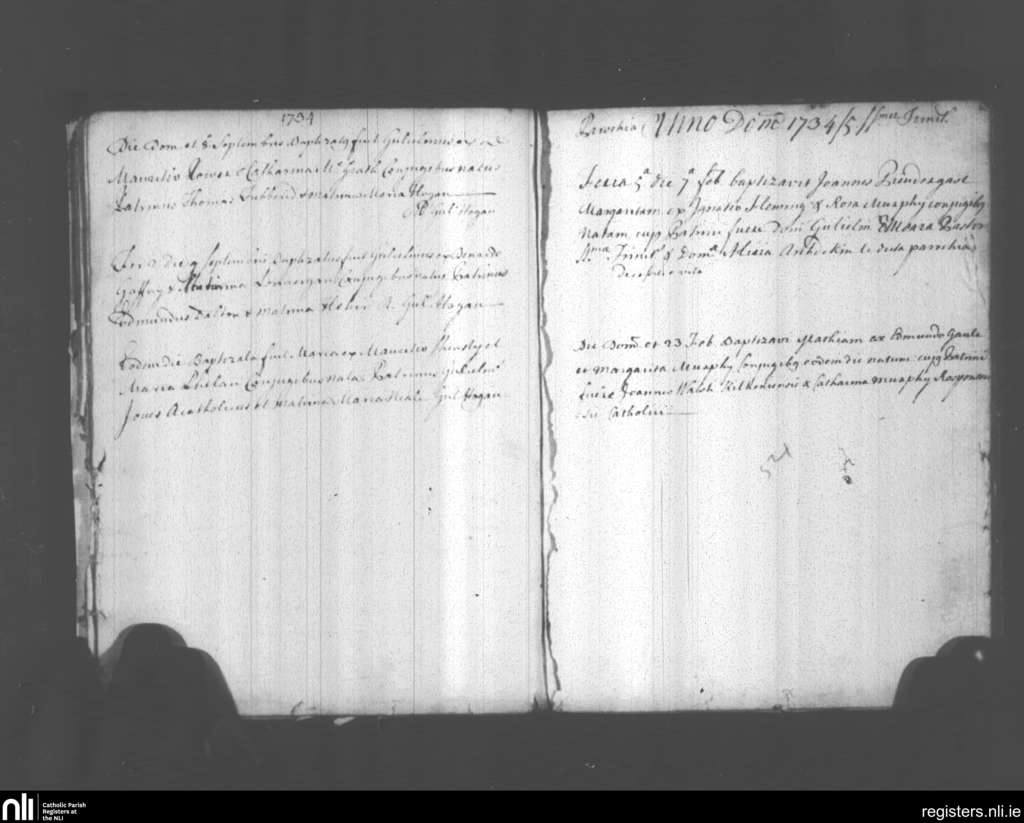 1734
Die Dom et 8 Septembris Baptizatus fuit Gulielmus ex
Mauritio Power & Catharina Mc Grath Conjugibus natus
Patrinus Thomas Tubberd & Matrina Maria Hogan
Gul: Hogan
Fer 2 die 9 Septembris Baptizatus fuit Gulielmus ex
Gaffny & Lonnergan Conjugibus natus Patrinus
Edmundus Dalton & matrina Gul: Hogan
Eodem die Baptizata fuit Maria ex Mauritio
Maria Phelan Conjugibus nata Patrinus Gulielmus
Jones Acatholicus et matrina Maria Neale Gul Hogan
Parochia Anno Domi 1734/5 SSmae Trinit.
Feria 5a die 7a feb. baptizavit Joannes Prendergast
Margaritam ex Ignatio Fleming & Rosa Murphy conjugibus
natam cujus Patrini fuere Dom Gulielm OMeara Pastor
SSma Trinit & Doma Maria de dicta parochia
Die Dom. et 23 Feb. Baptizavi Mathiam ex Edmundo Gaule
et Margarita Murphy Conjugibus eodem die natum cujus Patrini
fuere Joannes Walsh Kilkeniensis & Catharina Murphy
Catholici
nli
Catholic Parish
Registers at
the NLI
registers.nli.ie